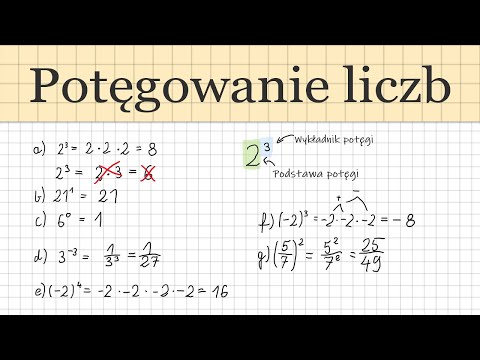 Potęgowanie liczb
a) 2³ = 2 · 2 · 2 = 8
2³ = 2 · 3 = 6
b) 21¹ = 21
c) 6⁰ = 1
d) 3⁻³ = 1/3³ = 1/27
e) (-2)⁴ = -2 · -2 · -2 · -2 = 16
2³
Wykładnik potęgi
Podstawa potęgi
+ -
f) (-2)³ = -2 · -2 · -2 = -8
g) (5/7)² = 5²/7² = 25/49